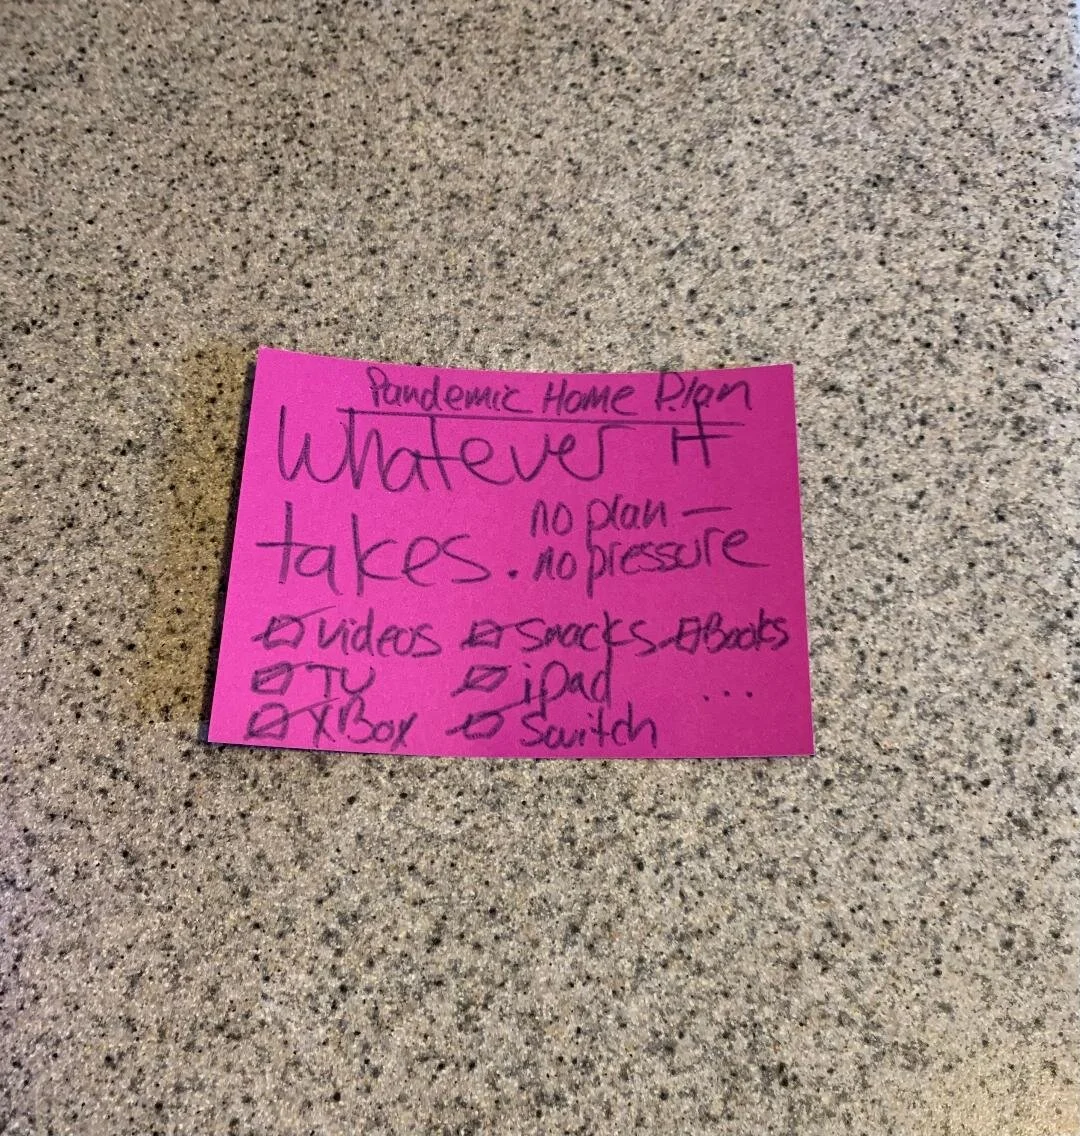 Pandemic Home Plan
Whatever it
takes. no plan —
no pressure
☑ Videos ☑ Snacks ☑ Books
☑ TV ☑ iPad ...
☑ XBox ☑ Switch